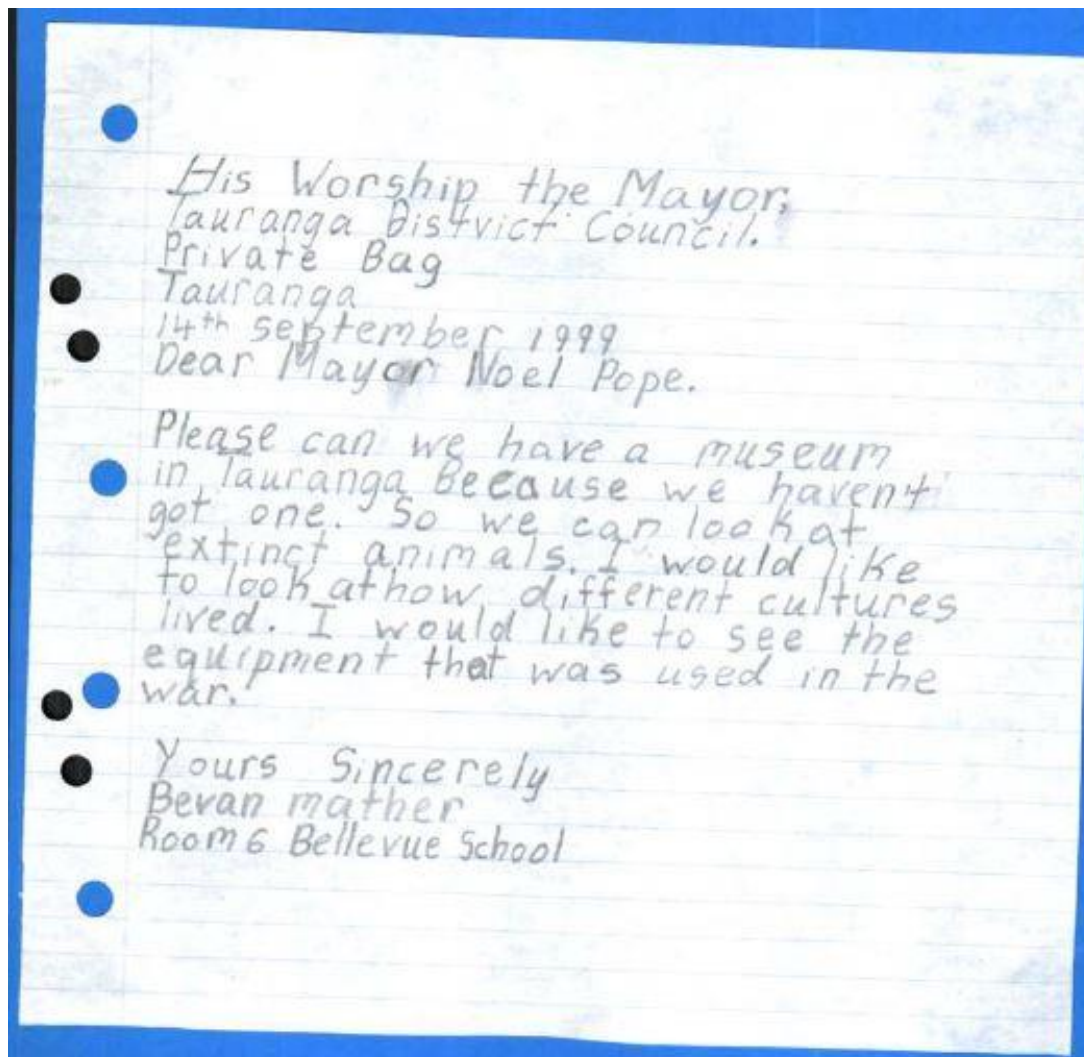 His Worship the Mayor,
Tauranga District Council.
Private Bag
Tauranga
14th september 1999
Dear Mayor Noel Pope.
Please can we have a museum
in Tauranga Because we haven't
got one. So we can look at
extinct animals. I would like
to look at how different cultures
lived. I would like to see the
equipment that was used in the
war.
Yours Sincerely
Bevan mather
Room 6 Bellevue School